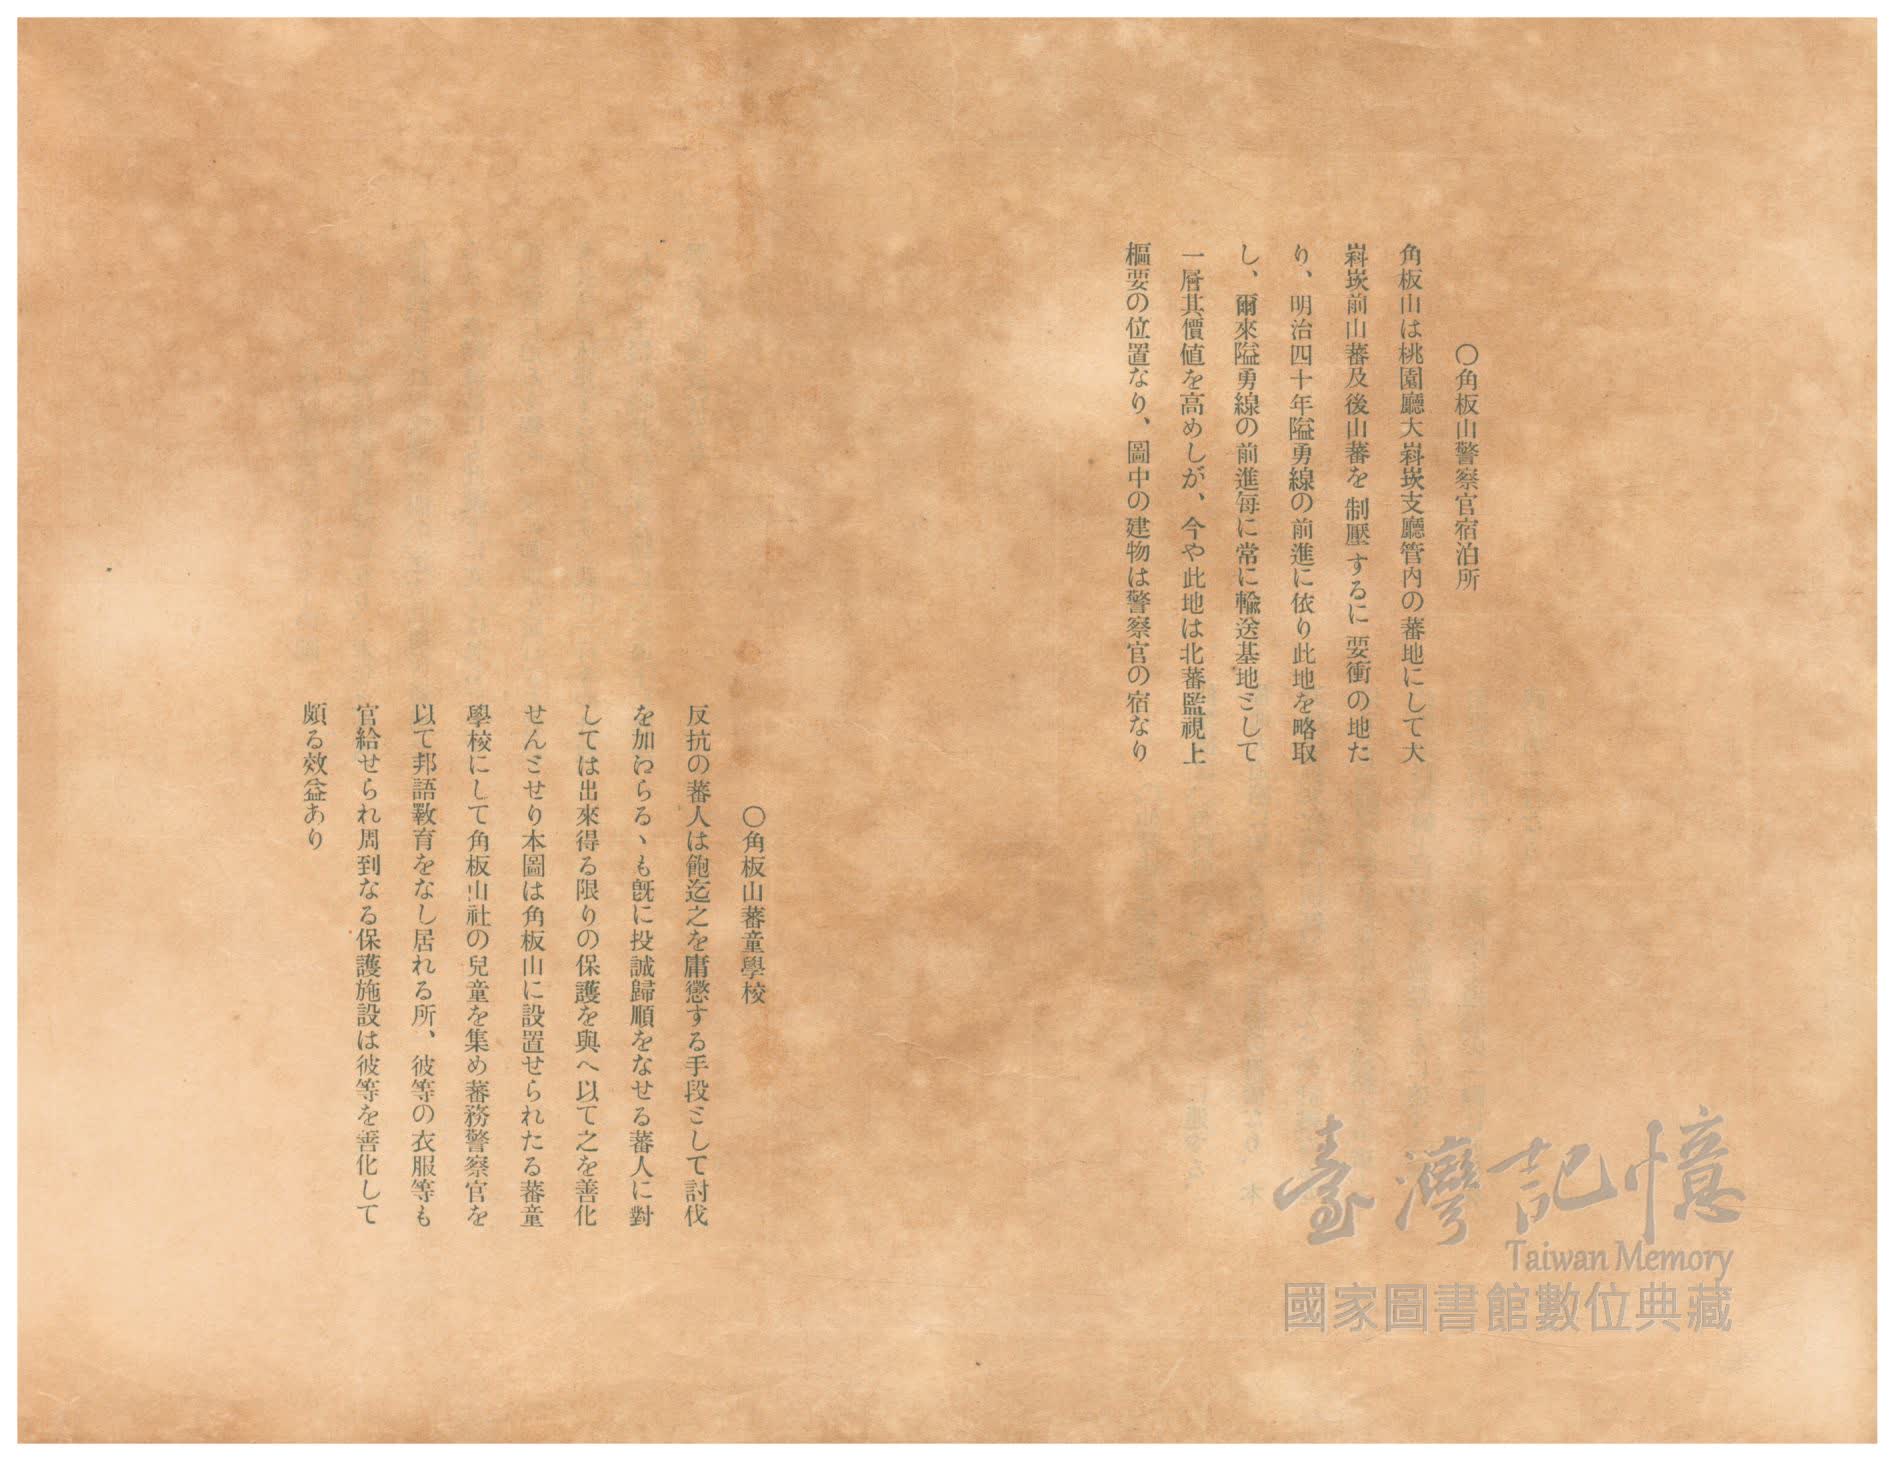 〇角板山警察官宿泊所
角板山は桃園廳大嵙崁支廳管內の蕃地にして大
嵙崁前山蕃及後山蕃を制壓するに要衝の地た
り、明治四十年隘勇線の前進に依り此地を略取
し、爾來隘勇線の前進每に常に輸送基地ミして
一層其價値を高めしが、今や此地は北蕃監視上
樞要の位置なり、圖中の建物は警察官の宿なり
〇角板山蕃童學校
反抗の蕃人は飽迄之を庸懲する手段ミして討伐
を加ねらるゝも旣に投誠歸順をなせる蕃人に對
しては出來得る限りの保護を與へ以て之を善化
せんミせり本圖は角板山に設置せられたる蕃童
學校にして角板山社の兒童を集め蕃務警察官を
以て邦語敎育をなし居れる所、彼等の衣服等も
官給せられ周到なる保護施設は彼等を善化して
頗る效益あり
臺灣記憶
Taiwan Memory
國家圖書館數位典藏